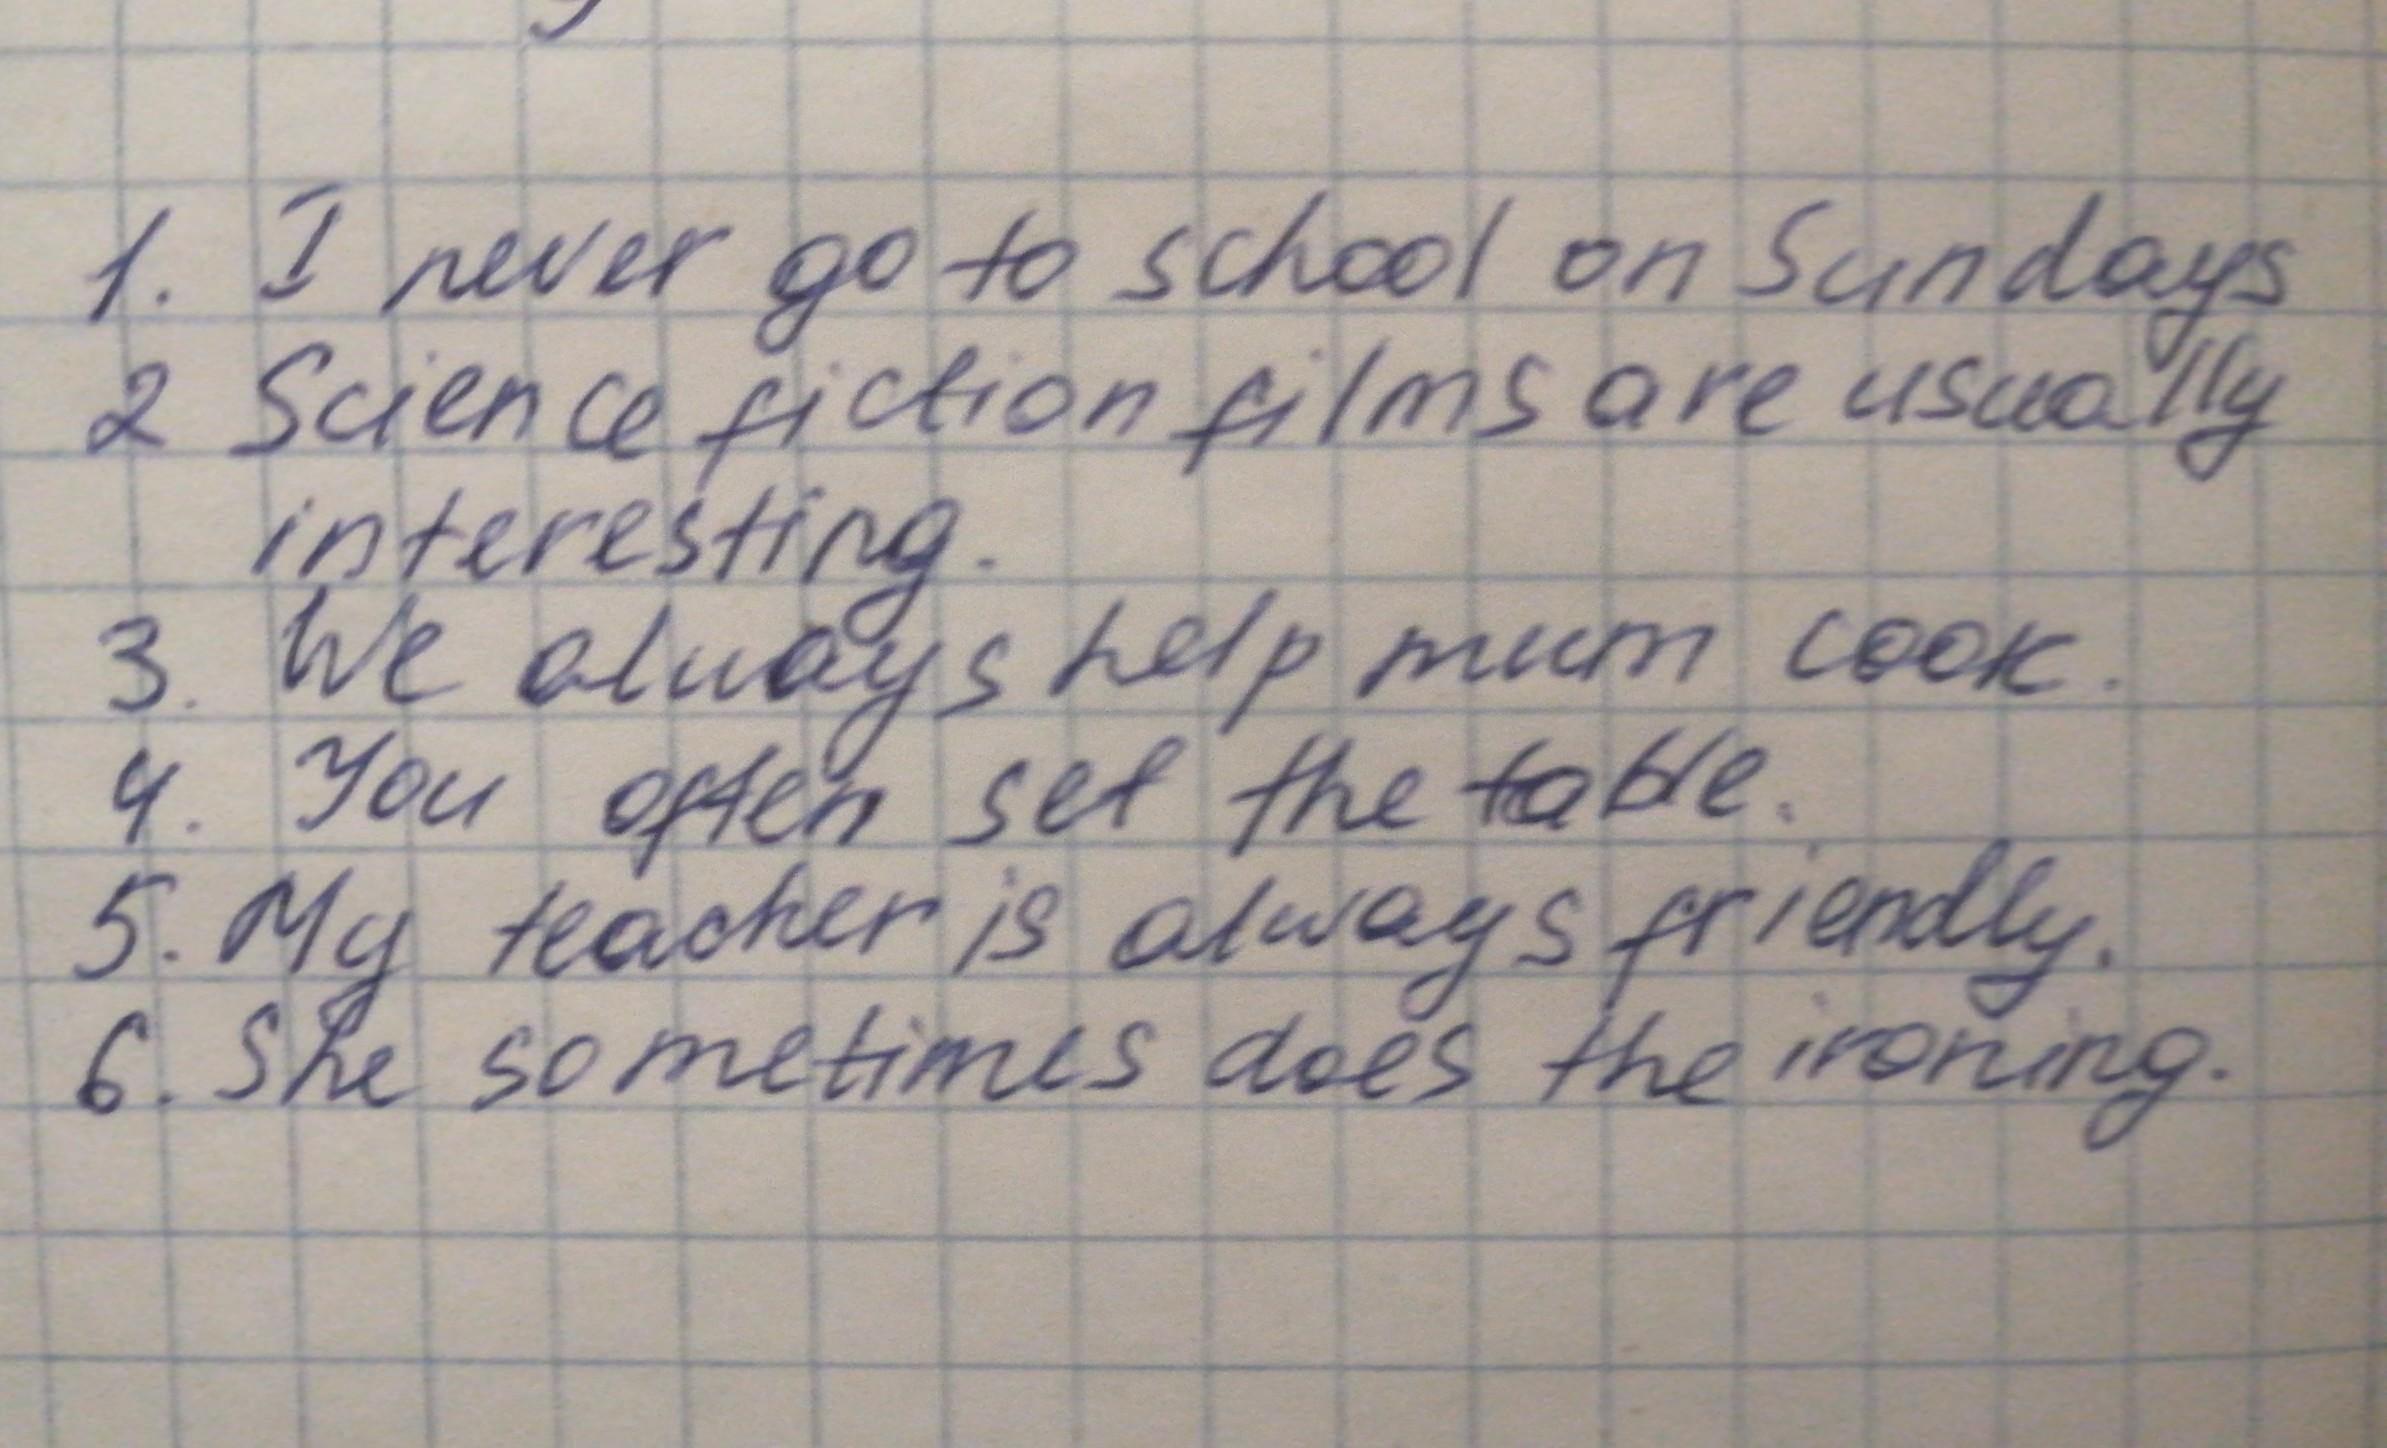 1. I never go to school on Sundays
2 Science fiction films are usually
interesting.
3. We always help mum cook.
4. You often set the table.
5. My teacher is always friendly.
6. She sometimes does the ironing.